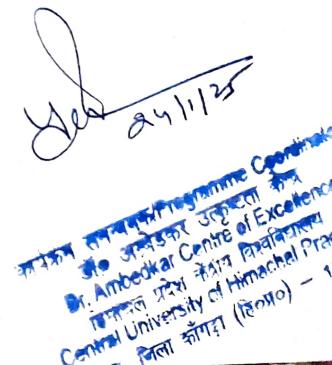 24/1/25
कार्यक्रम समन्वयक/Programme Coordinato
डॉ० अम्बेडकर उत्कृष्टता केंद्र
Dr. Ambedkar Centre of Excellence
हिमाचल प्रदेश केंद्रीय विश्वविद्यालय
Central University of Himachel Prad
जिला काँगड़ा (हि०प्र०) – 1